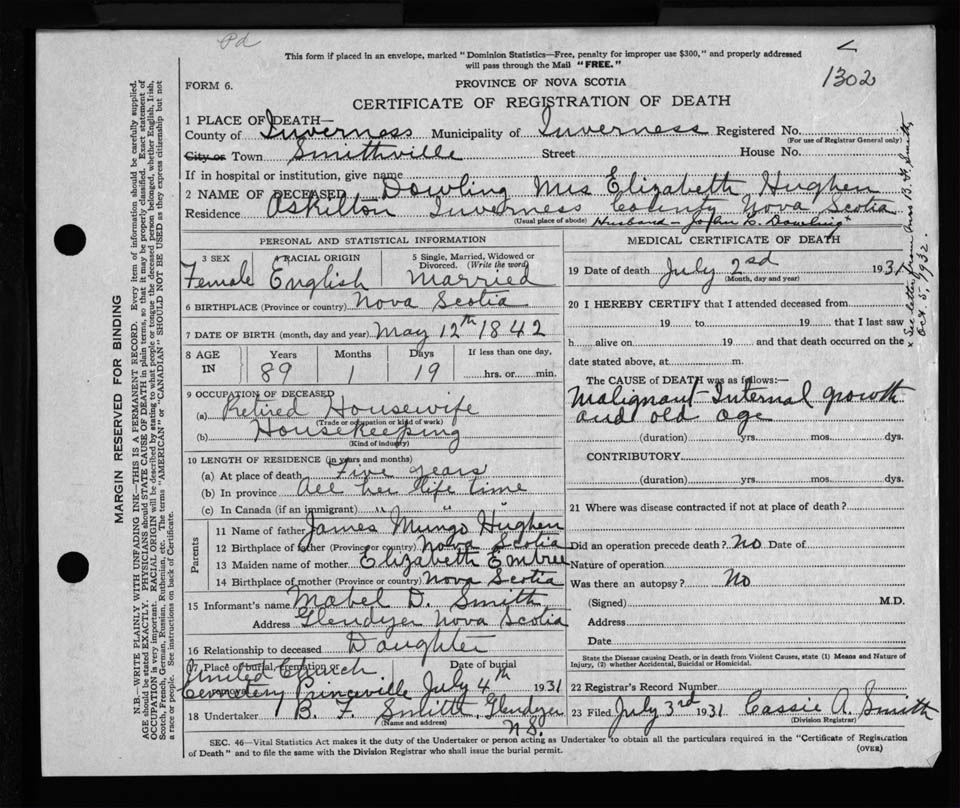 Pd
This form if placed in an envelope, marked "Dominion Statistics—Free, penalty for improper use $300," and properly addressed
will pass through the Mail "FREE."
1302
FORM 6.
PROVINCE OF NOVA SCOTIA
CERTIFICATE OF REGISTRATION OF DEATH
1 PLACE OF DEATH—
County of Inverness Municipality of Inverness Registered No.
(For use of Registrar General only)
City or Town Smithville Street House No.
If in hospital or institution, give name
2 NAME OF DECEASED Dowling Mrs Elizabeth Hughen
Residence Askilton Inverness County Nova Scotia
(Usual place of abode) Husband - John C. Dowling x
PERSONAL AND STATISTICAL INFORMATION
3 SEX Female
4 RACIAL ORIGIN English
5 Single, Married, Widowed or Divorced. (Write the word) Married
6 BIRTHPLACE (Province or country) Nova Scotia
7 DATE OF BIRTH (month, day and year) May 12th 1842
8 AGE IN Years 89 Months 1 Days 19 If less than one day, hrs. or min.
9 OCCUPATION OF DECEASED
(a) Retired Housewife
(Trade or occupation or kind of work)
(b) Housekeeping
(Kind of industry)
10 LENGTH OF RESIDENCE (in years and months)
(a) At place of death Five years
(b) In province All her life time
(c) In Canada (if an immigrant) " "
Parents
11 Name of father James Mungo Hughen
12 Birthplace of father (Province or country) Nova Scotia
13 Maiden name of mother Elizabeth Embree
14 Birthplace of mother (Province or country) Nova Scotia
15 Informant's name Mabel D. Smith
Address Glendyer Nova Scotia
16 Relationship to deceased Daughter
17 Place of burial, cremation or removal Date of burial
United Church
Cemetery Princeville July 4th 1931
18 Undertaker B. F. Smith Glendyer
(Name and address) N.S.
MEDICAL CERTIFICATE OF DEATH
19 Date of death July 2sd 1931
(Month, day and year)
20 I HEREBY CERTIFY that I attended deceased from
19 to 19 that I last saw
h alive on 19 and that death occurred on the
date stated above, at m.
The CAUSE of DEATH was as follows:—
Malignant Internal growth
and old age
(duration) yrs. mos. dys.
CONTRIBUTORY
(duration) yrs. mos. dys.
21 Where was disease contracted if not at place of death?
Did an operation precede death? No Date of
Nature of operation
Was there an autopsy? No
(Signed) M.D.
Address
Date
State the Disease causing Death, or in death from Violent Causes, state (1) Means and Nature of
Injury, (2) whether Accidental, Suicidal or Homicidal.
22 Registrar's Record Number
23 Filed July 3rd 1931 Cassie A. Smith
(Division Registrar)
SEC. 46—Vital Statistics Act makes it the duty of the Undertaker or person acting as Undertaker to obtain all the particulars required in the "Certificate of Registration
of Death" and to file the same with the Division Registrar who shall issue the burial permit.
(OVER)
x See letter from Mrs B. F. Smith,
Oct. 5, 1932.
MARGIN RESERVED FOR BINDING
N.B.—WRITE PLAINLY WITH UNFADING INK—THIS IS A PERMANENT RECORD. Every item of information should be carefully supplied.
AGE should be stated EXACTLY. PHYSICIANS should STATE CAUSE OF DEATH in plain terms, so that it may be properly classified. Exact statement of
OCCUPATION is very important. RACIAL ORIGIN will be described by stating to what people or tongue the deceased person belonged, whether English, Irish,
Scotch, French, German, Russian, Ruthenian, etc. The terms "AMERICAN" or "CANADIAN" SHOULD NOT BE USED as they express citizenship but not
a race or people. See instructions on back of Certificate.